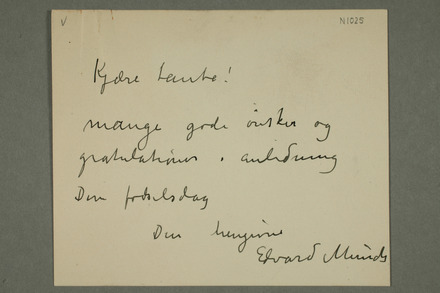 V
N1025
Kjære tante!
mange gode önsker og
gratulationer i anledning
Din fødselsdag
Din hengivne
Edvard Munch